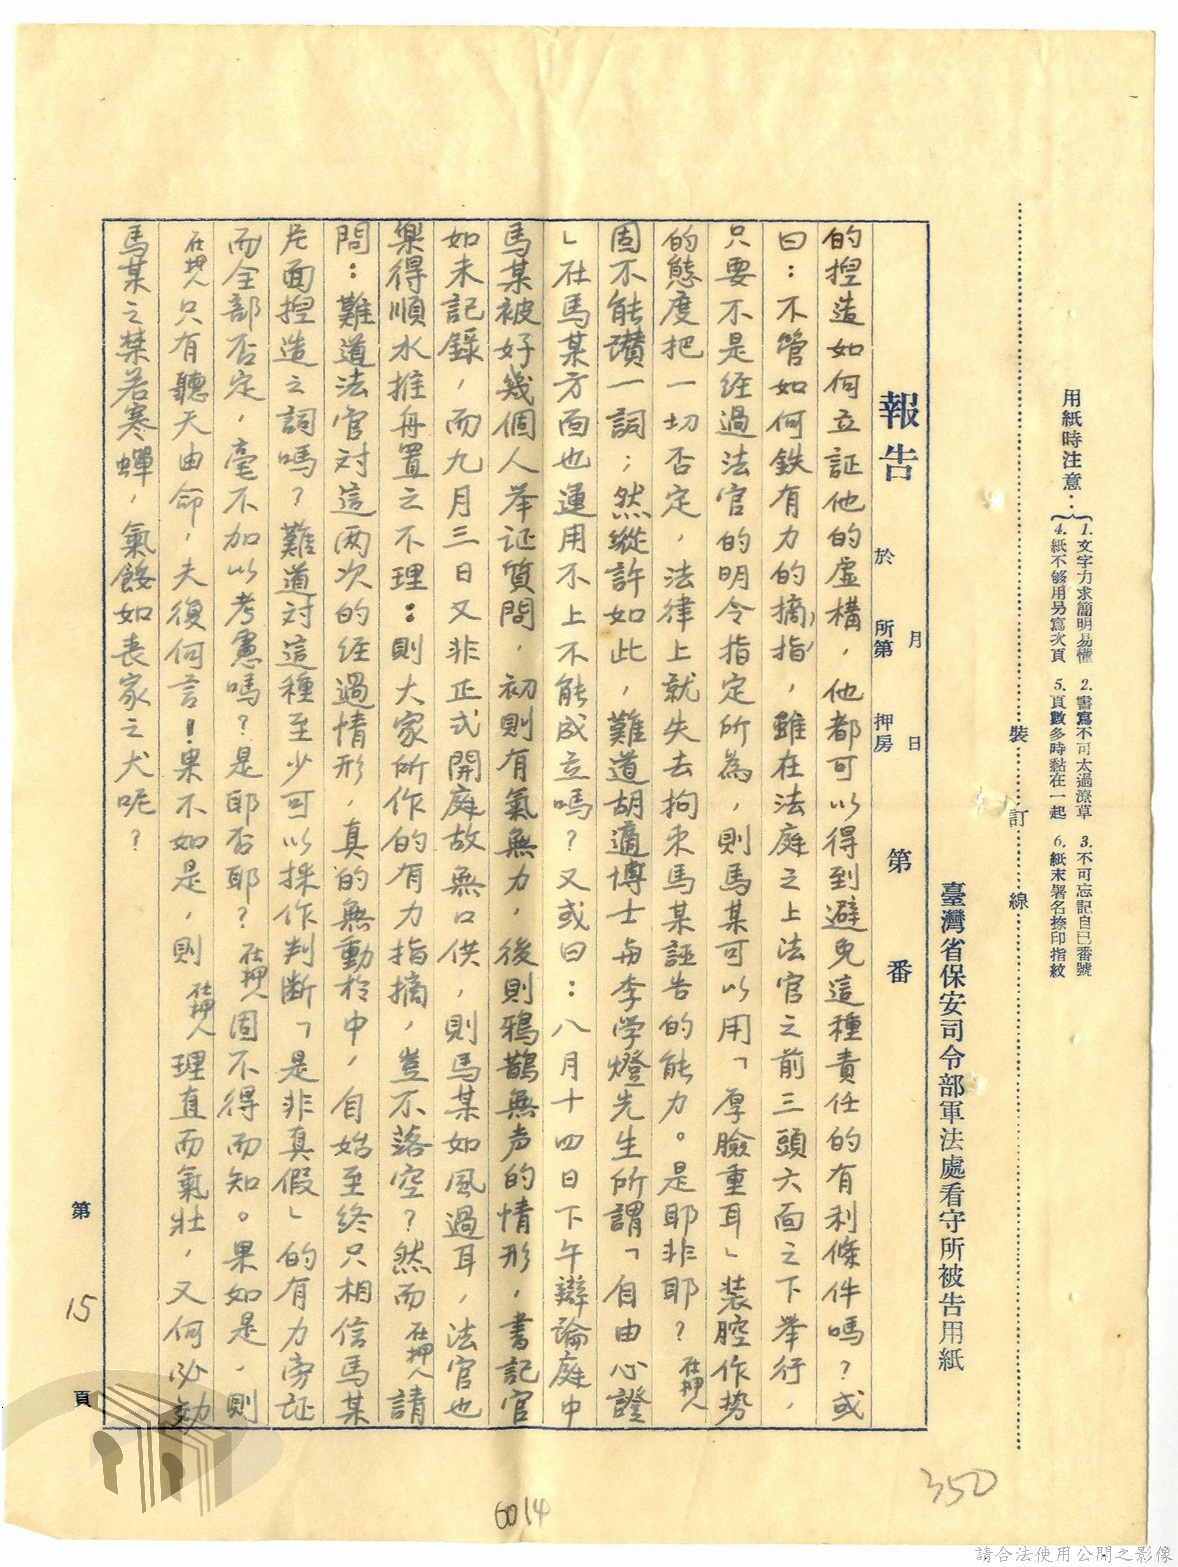 用紙時注意：
1. 文字力求簡明易懂　2. 書寫不可太過潦草　3. 不可忘記自己番號
4. 紙不够用另寫次頁　5. 頁數多時黏在一起　6. 紙末署名捺印指紋
裝　訂　線
臺灣省保安司令部軍法處看守所被告用紙
報告　第　番
月　日
於　所第　押房
的揑造如何立証他的虛構，他都可以得到避免這種責任的有利條件嗎？或
曰：不管如何鉄有力的摘指，雖在法庭之上法官之前三頭六面之下举行，
只要不是经過法官的明令指定所為，則馬某可以用「厚臉重耳」裝腔作势
的態度把一切否定，法律上就失去拘束馬某誣告的能力。是耶非耶？在押人
固不能讃一詞；然縱許如此，難道胡適博士与李学燈先生所謂「自由心證
」在馬某方面也運用不上不能成立嗎？又或曰：八月十四日下午辯論庭中
馬某被好幾個人举证質問，初則有氣無力，後則鴉鵲無声的情形，書記官
如未記錄，而九月三日又非正式開庭故無口供，則馬某如風過耳，法官也
樂得順水推舟置之不理：則大家所作的有力指摘，豈不落空？然而在押人請
問：難道法官対這両次的经過情形，真的無動於中，自始至终只相信馬某
片面揑造之詞嗎？難道対這種至少可以採作判断「是非真假」的有力旁証
而全部否定，毫不加以考慮嗎？是耶否耶？在押人固不得而知。果如是，則
在押人只有聽天由命，夫復何言！果不如是，則在押人理直而氣壯，又何必効
馬某之禁若寒蟬，氣餒如丧家之犬呢？
第 15 頁
350
6014
請合法使用公開之影像